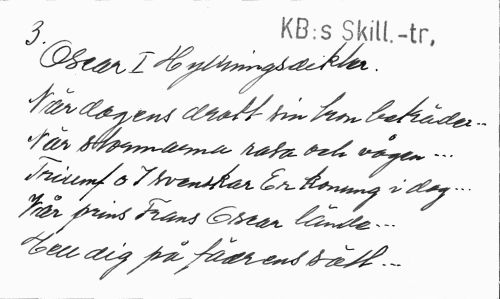 3.
KB:s Skill.-tr,
Oscar I Hyllningsdikter.
När dagens drott sin tron beträder...
När stormarna rasa och vågen ...
Triumf o I svenskar Er konung i dag...
När prins Frans Oscar lände...
Hell dig på fädrens sätt...